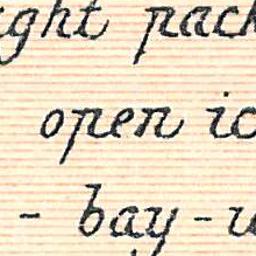 ght pack
open ic
- bay -